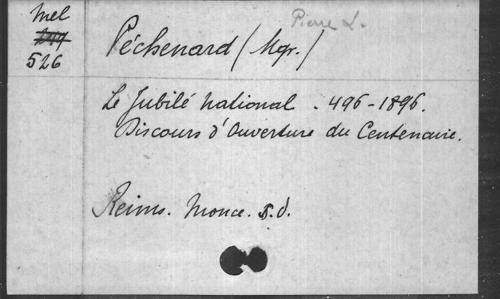 Mel
526
Pierre L.
Péchenard (Mgr.)
Le Jubilé National . 496-1896.
Discours d'Ouverture du Centenaire.
Reims. Monce. s.d.